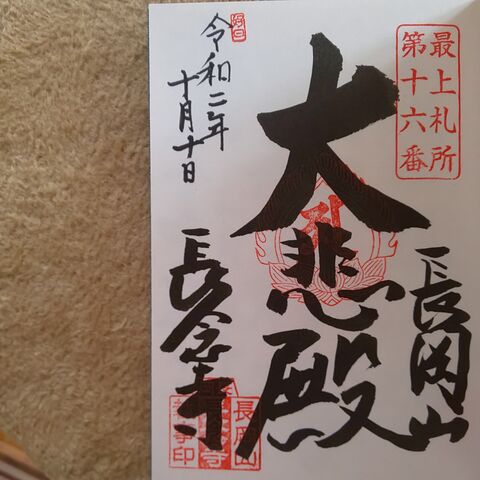 最上札所
第十六番
長岡山
大悲殿
令和二年
十月十日
長念寺
長岡山